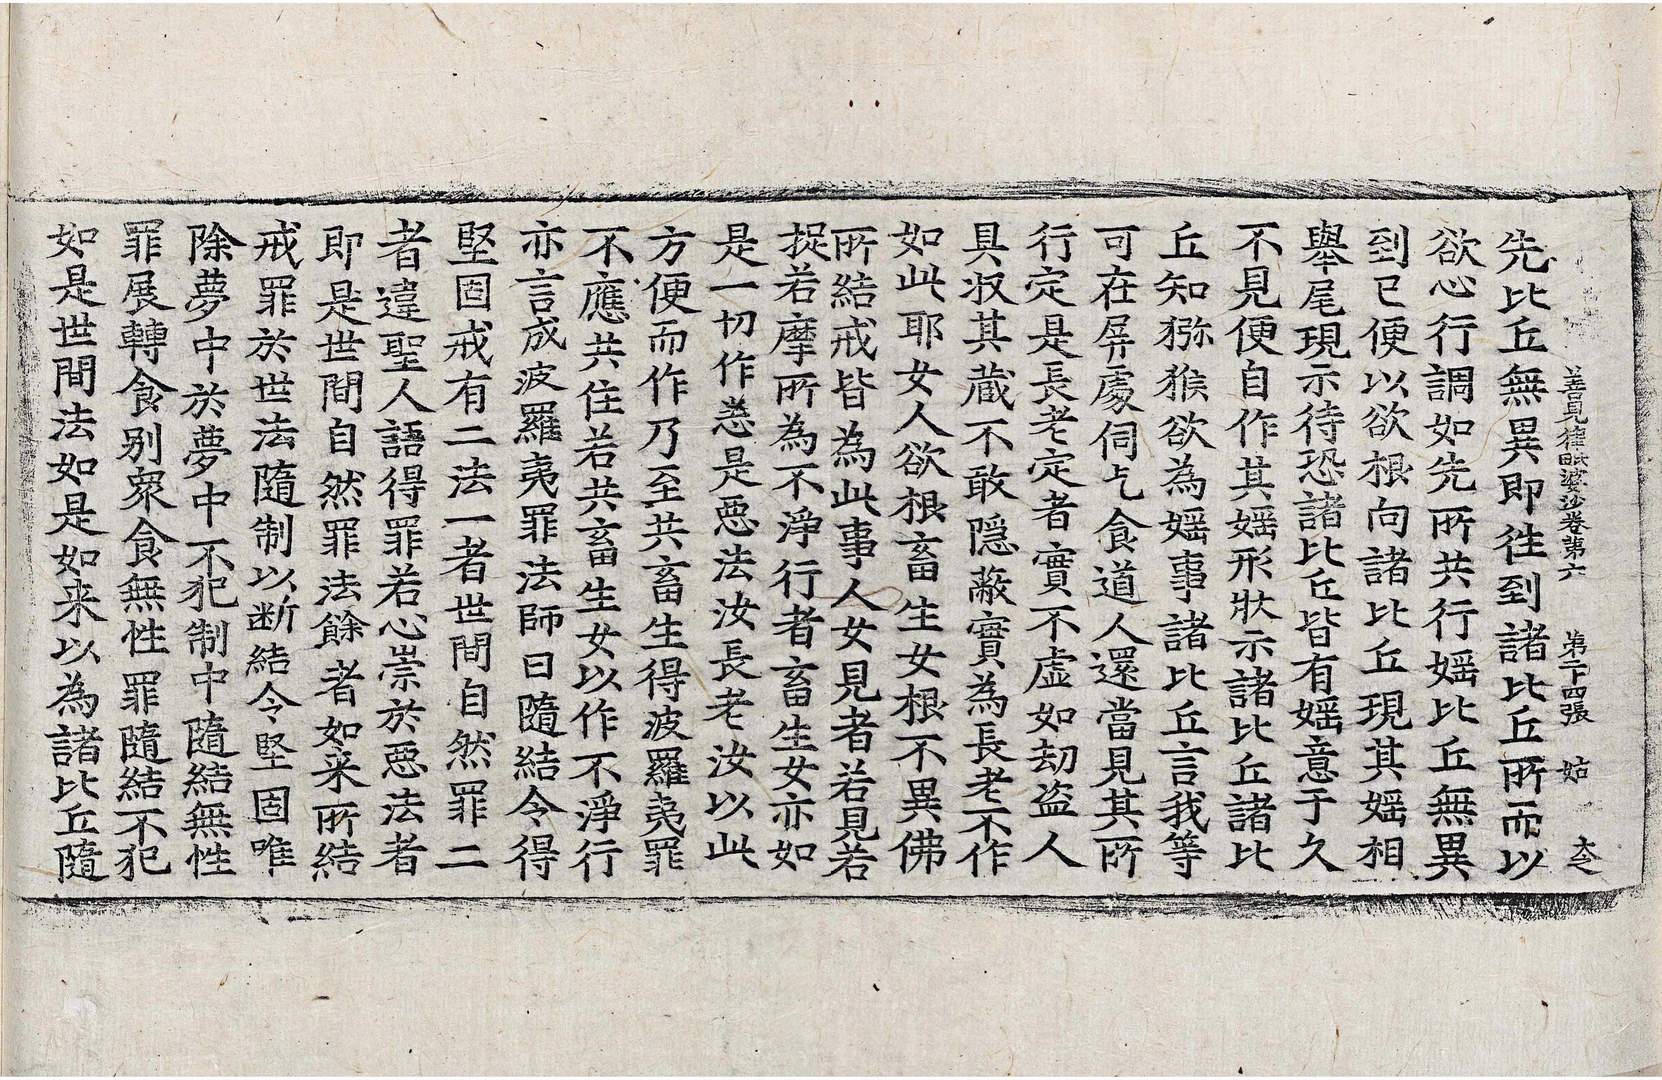 善見律毗婆沙卷第六 第二十四張 姑
先比丘無異即徃到諸比丘所而以
欲心行調如先所共行婬比丘無異
到已便以欲根向諸比丘現其婬相
舉尾現示待恐諸比丘皆有婬意于久
不見便自作其婬形狀示諸比丘諸比
丘知猕猴欲為婬事諸比丘言我等
可在屏處伺乞食道人還當見其所
行定是長老定者實不虛如劫盜人
具収其蔵不敢隱蔽實為長老不作
如此耶女人欲根畜生女根不異佛
所結戒皆為此事人女見者若見若
捉若摩所為不淨行者畜生女亦如
是一切作惡是惡法汝長老汝以此
方便而作乃至共畜生得波羅夷罪
不應共住若共畜生女以作不淨行
亦言成波羅夷罪法師曰隨結令得
堅固戒有二法一者世間自然罪二
者違聖人語得罪若心崇於惡法者
即是世間自然罪法餘者如来所結
戒罪於世法隨制以断結令堅固唯
除夢中於夢中不犯制中隨結無性
罪展轉食別衆食無性罪隨結不犯
如是世間法如是如来以為諸比丘隨